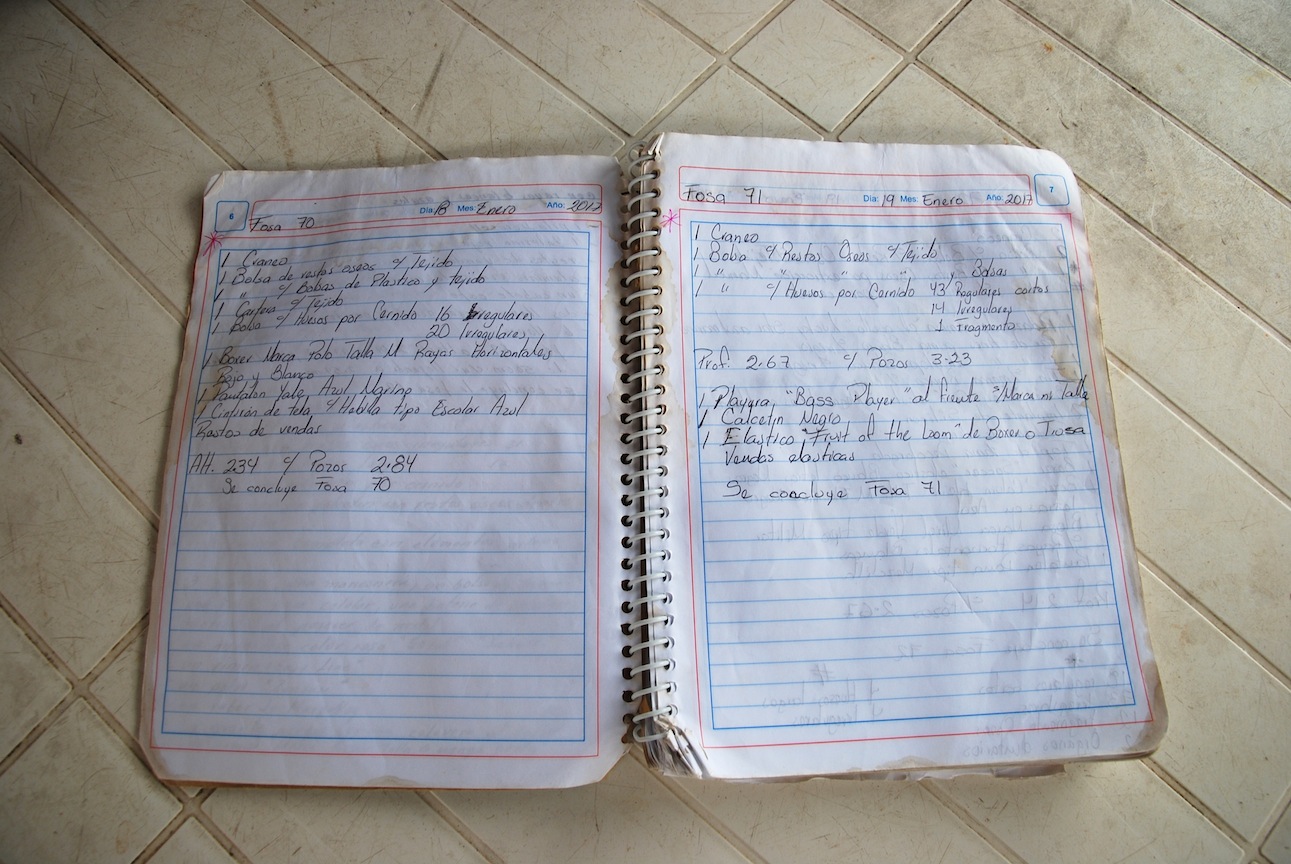 6
Día: Mes: Enero Año: 2017
Fosa 70
1 Craneo
1 Bolsa de restos oseos c/ Tejido
1 " c/ Bolsas de Plastico y tejido
1 c/ Tejido
1 Bolsa c/ Huesos por Cernido 16 Irregulares
20 Irregulares
1 Boxer Marca Polo Talla M Rayas Horizontales
Rojo y Blanco
1 Pantalon Yale, Azul Marino
1 Cinturón de tela c/ Hebilla tipo Escolar Azul
Restos de vendas
Alt. 2.34 c/ Pozos 2.84
Se concluye Fosa 70
7
Fosa 71 Día: 19 Mes: Enero Año: 2017
1 Craneo
1 Bolsa c/ Restos Oseos c/ Tejido
1 " " " " y Bolsas
1 " c/ Huesos por Cernido 43 Regulares cortos
14 Irregulares
1 Fragmento
Prof. 2.67 c/ Pozos 3.23
1 Playera, "Bass Player" al frente s/Marca ni Talla
1 Calcetin Negro
1 Elastico "Fruit of the Loom" de Boxer o Trusa
Vendas elasticas
Se concluye Fosa 71